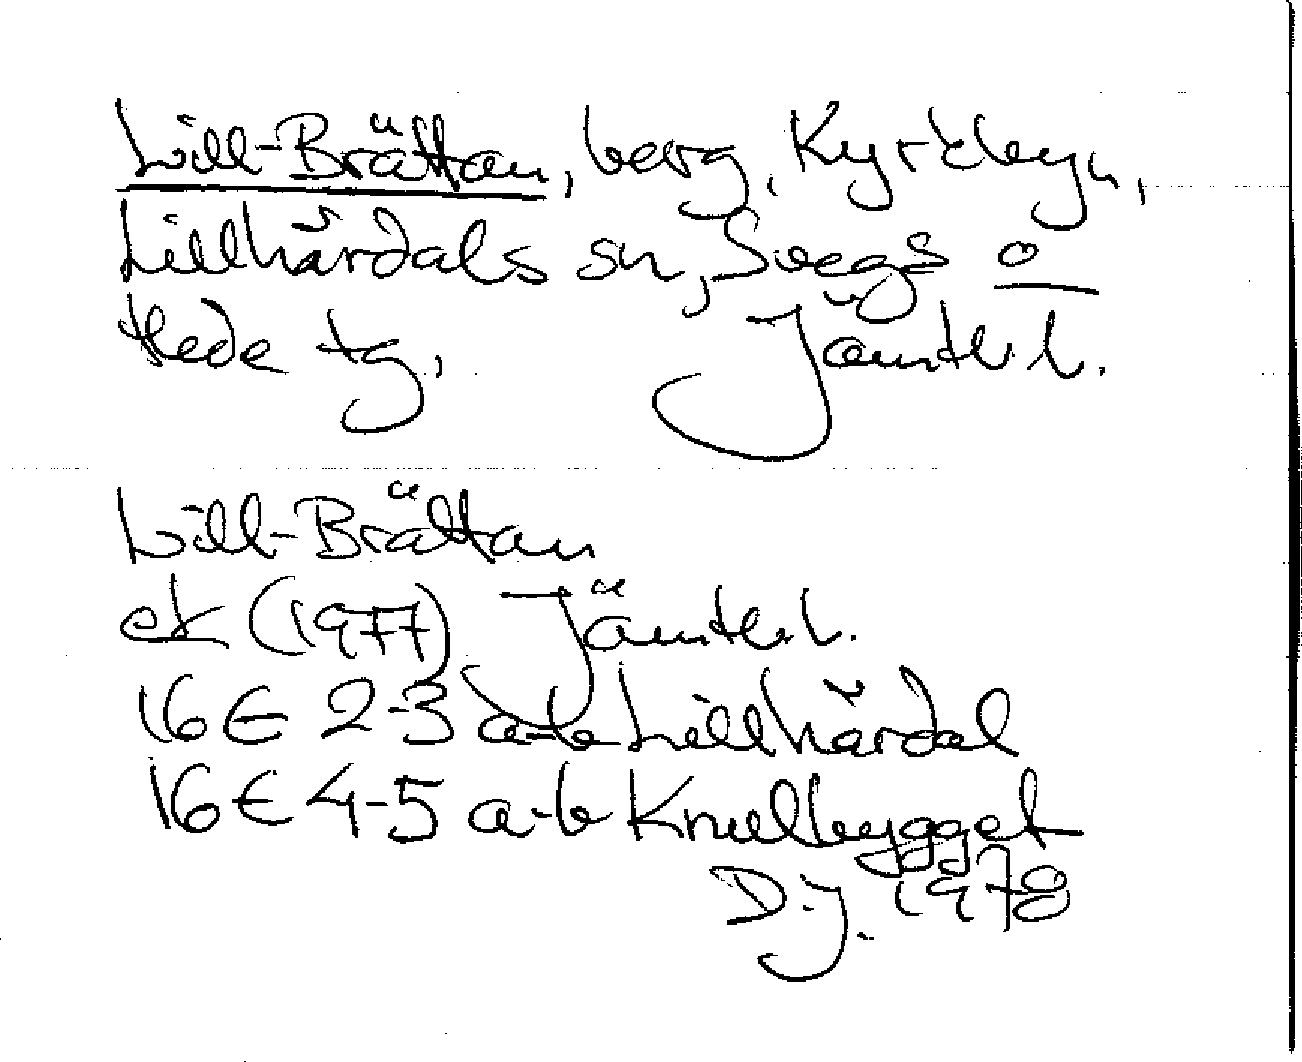 Lill-Brättan, berg, Kyrkbyn,
Lillhärdals sn, Svegs o
Hede tg, Jämtl. l.
Lill-Brättan
ek (1977) Jämtl. l.
16 E 2-3 a-b Lillhärdal
16 E 4-5 a-b Knullbygget
D.J. 1978